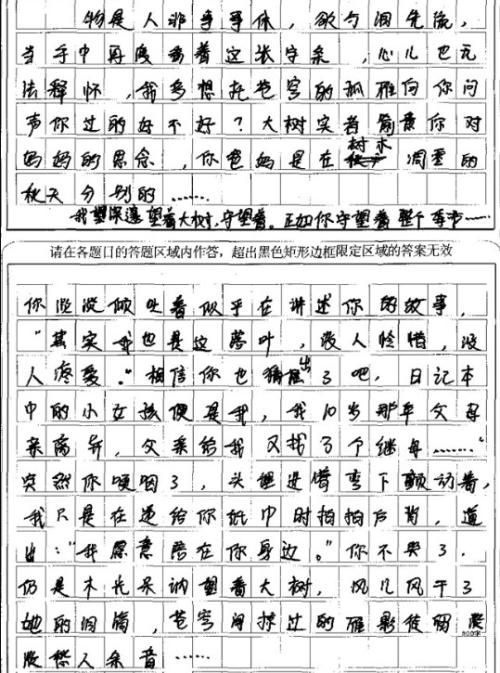 物是人非事事休，欲勺泪先流，
当手中再度番着这张字条，心儿也无
法释怀，我多想托苍穹的孤雁向你问
声你过的好不好？大树实着你对
妈妈的思念，你爸妈是在树木凋零的
秋天分别的……
我望深邃望着大树，守望着。正如你守望着整个季节……
请在各题口的答题区域内作答，超出黑色矩形边框限定区域的答案无效
你淡淡倾吐着似乎在讲述你的故事，
“其实我也是这落叶，没人怜惜，没
人疼爱。”相信你也猜出了吧，日记本
中的小女孩便是我，我10岁那年父母
亲离异，父亲给我又找了个继母……”
突然你哽咽了，头埋进臂弯下颤动着，
我只是在递给你纸巾时拍拍后背，道
出：“我愿意陪在你身边。”你不哭了，
仍是木木呆讷望着大树，风儿风干了
她的泪滴，苍穹间掠过的雁影使留
悠人余音……
800字